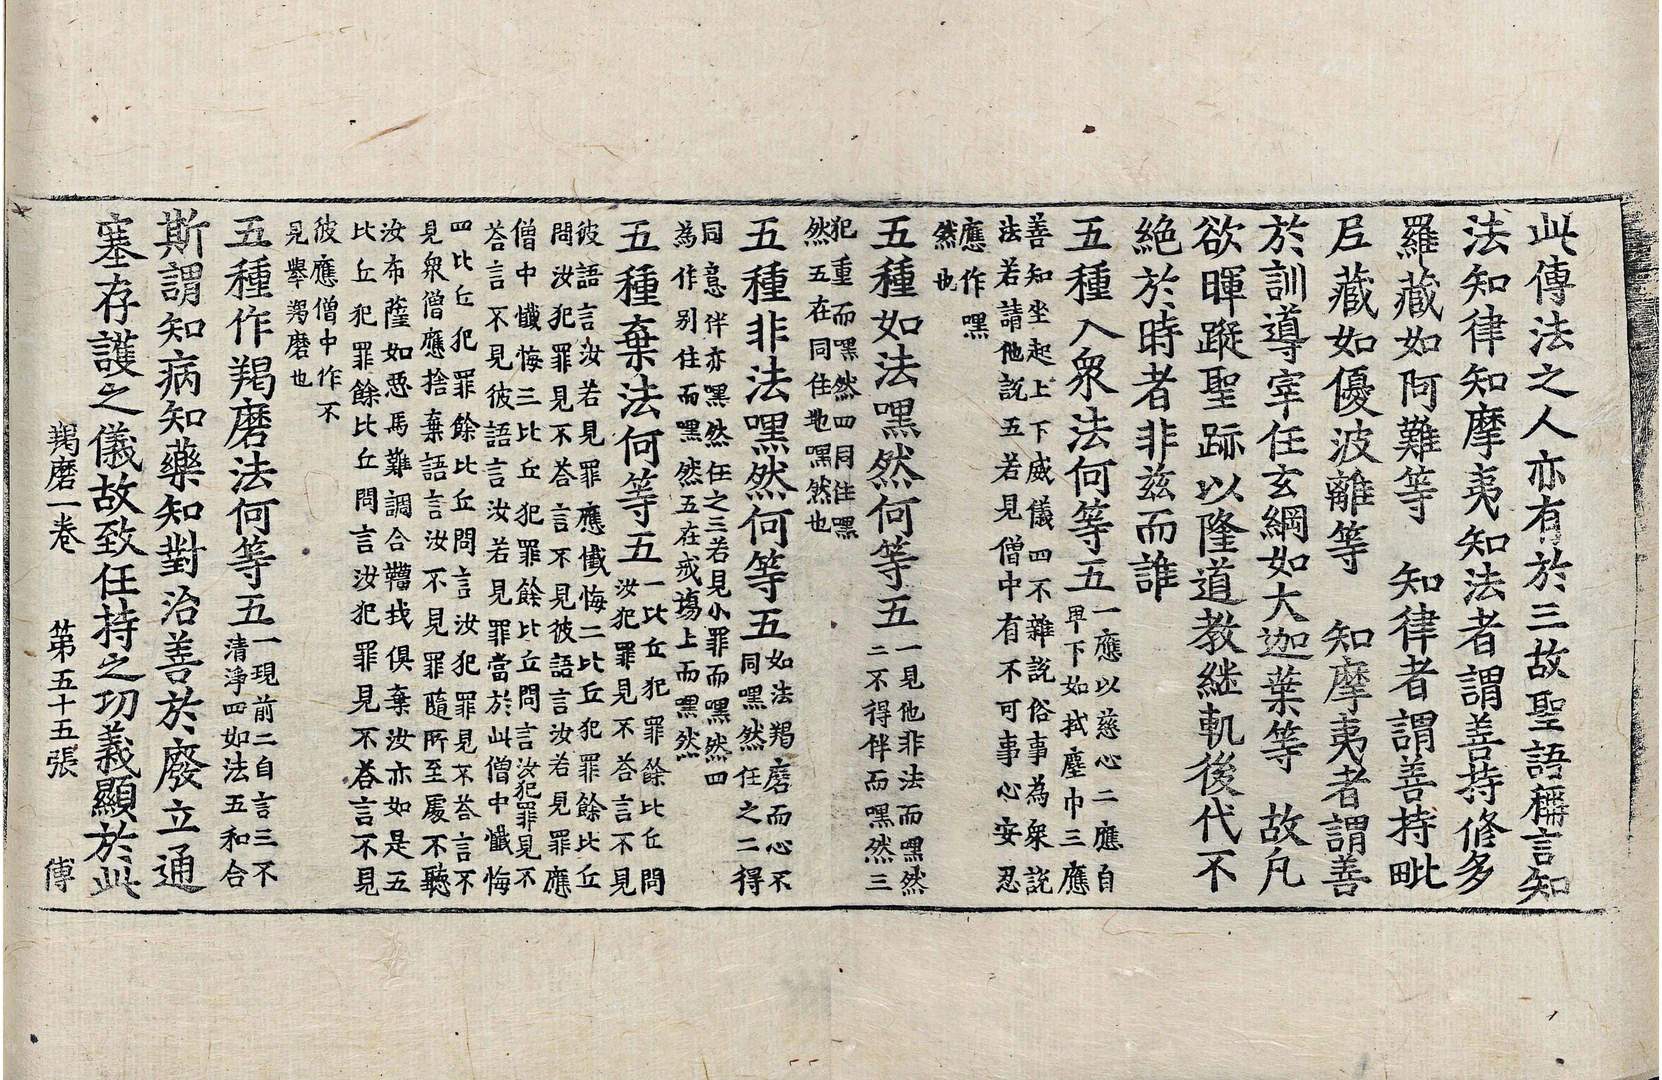 此傳法之人亦有於三故聖語稱言知
法知律知摩夷知法者謂善持修多
羅藏如阿難等　知律者謂善持毗
尼藏如優波離等　知摩夷者謂善
於訓導宰任玄綱如大迦葉等　故凡
欲暉蹤聖跡以隆道教継軌後代不
絶於時者非茲而誰
五種入衆法何等五
一應以慈心二應自
卑下如拭塵巾三應
善知坐起上下威儀四不雜說俗事為衆說
法若請他說五若見僧中有不可事心安忍
應作嘿
然也
五種如法嘿然何等五
一見他非法而嘿然
二不得伴而嘿然三
犯重而嘿然四同住嘿
然五在同住地嘿然也
五種非法嘿然何等五
如法羯磨而心不
同嘿然任之二得
同意伴亦嘿然任之三若見小罪而嘿然四
為作别住而嘿然五在戒塲上而嘿然
五種棄法何等五
一比丘犯罪餘比丘問
汝犯罪見不荅言不見
彼語言汝若見罪應懺悔二比丘犯罪餘比丘
問汝犯罪見不荅言不見彼語言汝若見罪應
僧中懺悔三比丘犯罪餘比丘問言汝犯罪見不
荅言不見彼語言汝若見罪當於此僧中懺悔
四比丘犯罪餘比丘問言汝犯罪見不荅言不
見衆僧應捨棄語言汝不見罪隨所至處不聽
汝布薩如惡馬難調合韁杙俱棄汝亦如是五
比丘犯罪餘比丘問言汝犯罪見不荅言不見
彼應僧中作不
見舉羯磨也
五種作羯磨法何等五
一現前二自言三不
清淨四如法五和合
斯謂知病知藥知對治善於廢立通
塞存護之儀故致任持之功義顯於此
羯磨一卷　第五十五張　傅